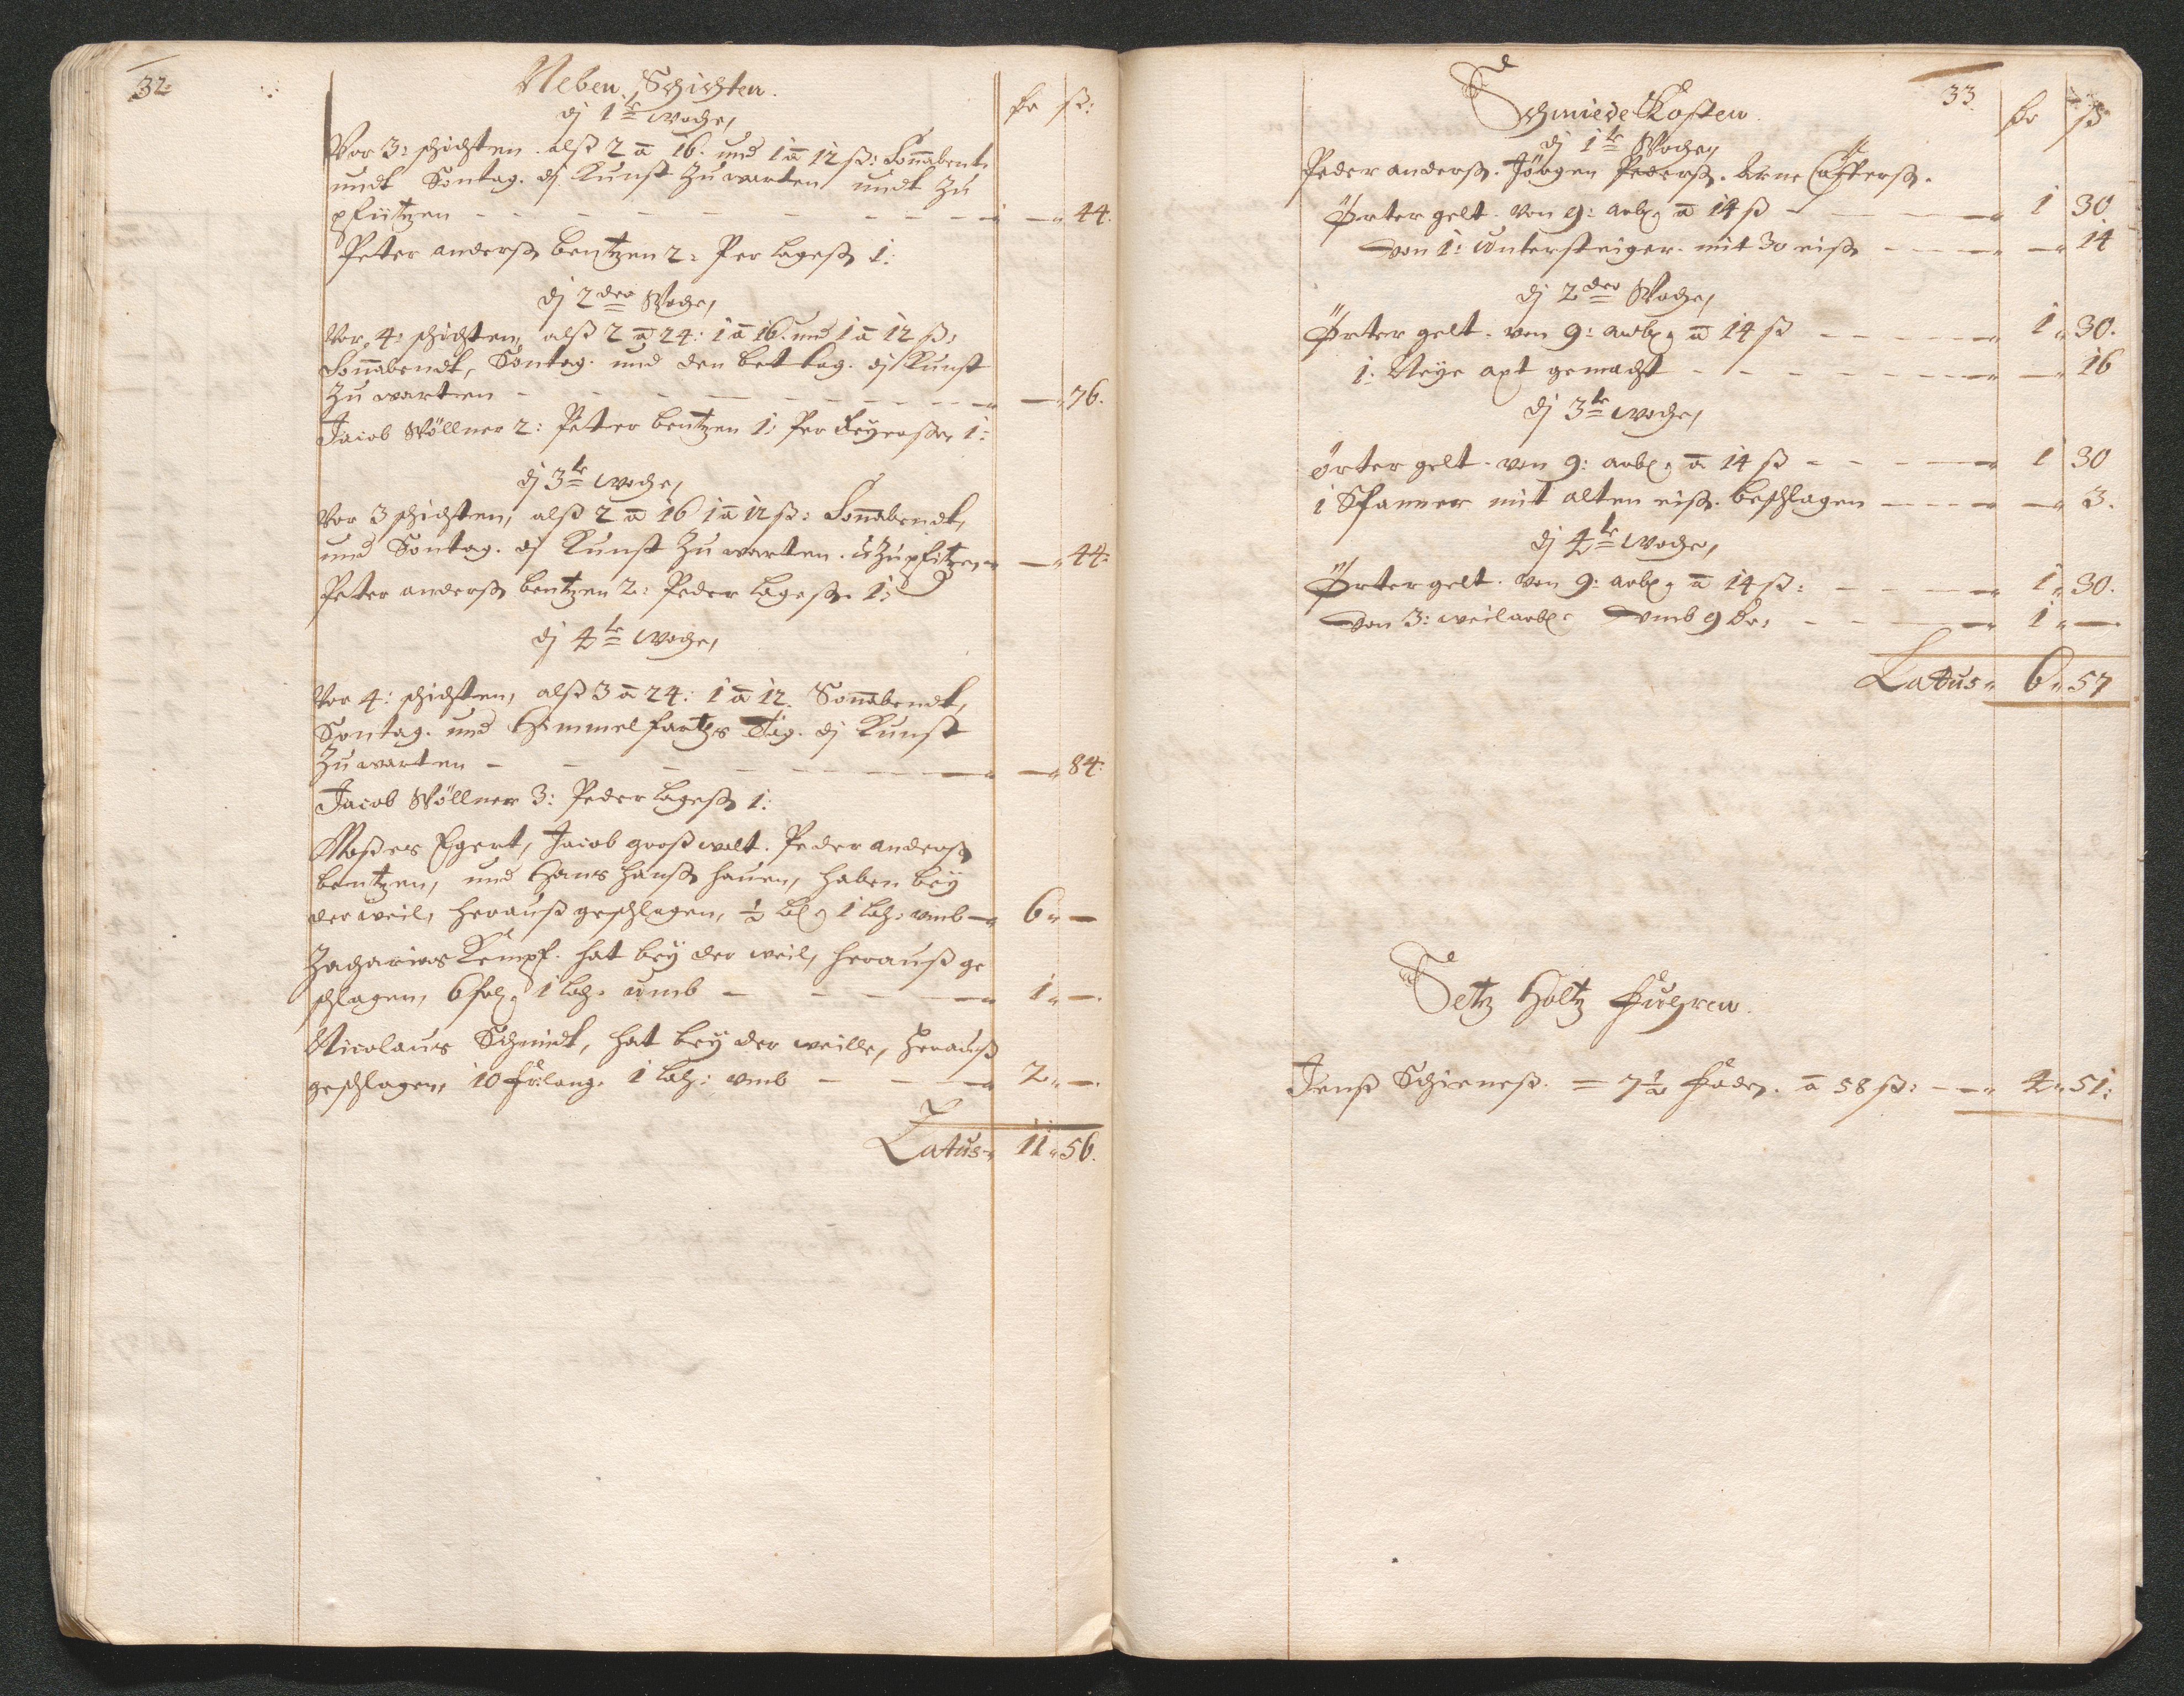 32:
Neben Schichten.
dj 1te woche,
Dr ß:
Vor 3: schichten alß 2 a 16. und 1 a 12 ß: Soñabent.
undt Sontag. dj Kunst zu warten undt zu
pfützen - - - - - - - - - " — " 44.
Peter anderß bentzen 2: Per lageß 1:
dj 2der Woche,
Vor 4: schichten, alß 2 a 24: 1 a 16. und 1 a 12 ß:
Soñabendt, Sontag. und den bet tag. dj Kunst
zu warten - - - - - - - - - " — " 76.
Jacob Wöllner 2: Peter bentzen 1: Per 1:
dj 3te woche,
Vor 3 schichten, alß 2 a 16 1 a 12 ß: Soñabendt,
und Sontag. dj Kunst zu warten. u zu pfützen " — " 44:
Peter anderß bentzen 2: Peder lageß. 1:
dj 4te woche,
Vor 4: schichten, alß 3 a 24: 1 a 12. Soñabendt,
Sontag. und Himmelfarths Tag. dj Kunst
zu warten - - - - - - - - " — " 84:
Jacob Wöllner 3: Peder lageß 1:
Moßes Egert, Jacob großwalt. Peder anderß
bentzen, und Hans Hanß hauen, haben bey
der weil, herauß geschlagen, ½ 1 lch: vmb — " 6 " —
Zacharias Kempf. hat bey der weil, herauß ge
schlagen, 6 1 lch. umb - - - - " 1 " —.
Nicolaus Schmidt, hat bey der weille, herauß
geschlagen, 10 1 lch: vmb - - - " 2 " —.
Latus " 11 " 56.
33.
Schmiede Kosten.
Dr ß
dj 1te Woche,
Peder anderß. Jörgen Pederß. Arne
Örter gelt. Von 9: arb: a 14 ß - - - " 1 30
Von 1: Untersteiger. mit 30 eiß - - - " — " 14
dj 2der Woche,
Örter gelt. von 9: arb: a 14 ß - - - - " 1 " 30.
1: Neye axt gemacht - - - - - - " — " 16
dj 3te woche,
örter gelt. von 9: arb: a 14 ß - - - " 1 30
1 Spanner mit alten eiß. beschlagen - - - " — " 3.
dj 4te woche,
Örter gelt. von 9: arb: a 14 ß: - - - " 1 " 30.
Von 3: weilarb: vmb 9 Dr: - - - " 1 " —
Latus " 6 " 57
Setz Holtz Fuhren.
Jenß Schieneß. = 7½ Fadn. a 58 ß: - - " 4 " 51: